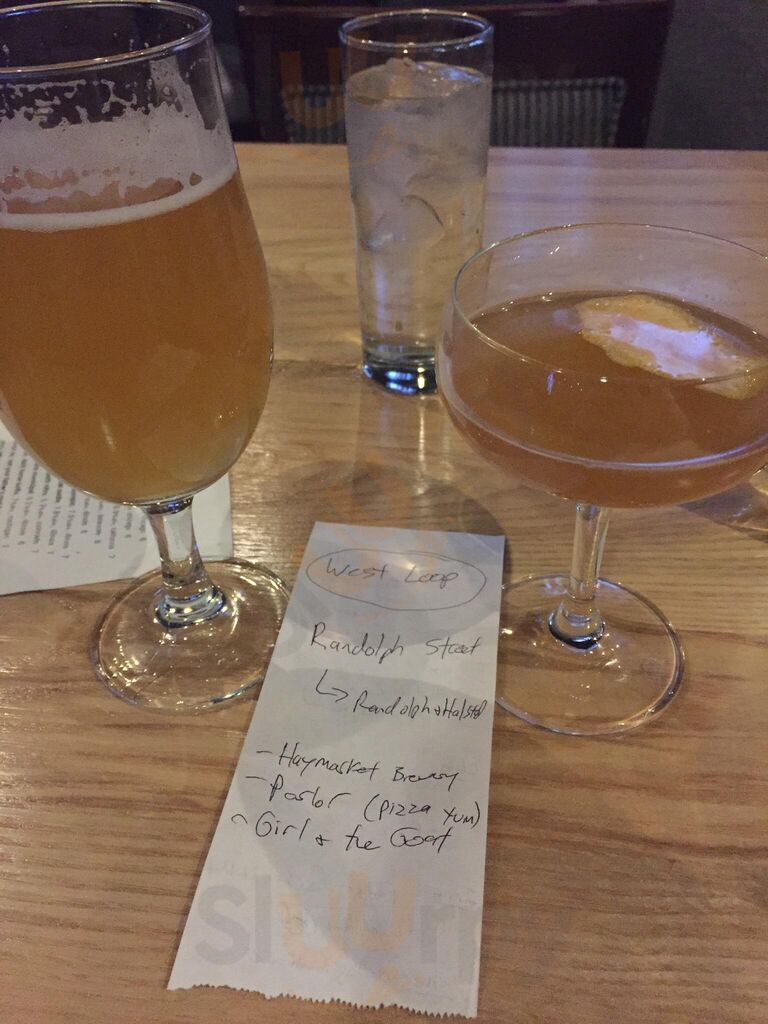 West Loop
Randolph Street
↳ Randolph & Halsted
- Haymarket Brewery
- Parlor (pizza yum)
- Girl & the Goat
sluurp